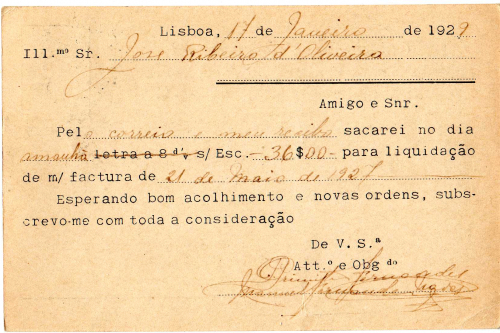 Lisboa, 17 de Janeiro de 1929
Ill.mo Sr. José Ribeiro d'Oliveira
Amigo e Snr.
Pelo correio e meu recibo sacarei no dia
amanhã letra a 8 d/v s/ Esc. -36$00- para liquidação
de m/ factura de 21 de Maio de 1927
Esperando bom acolhimento e novas ordens, subs-
crevo-me com toda a consideração
De V. S.ª
Att.º e Obg do